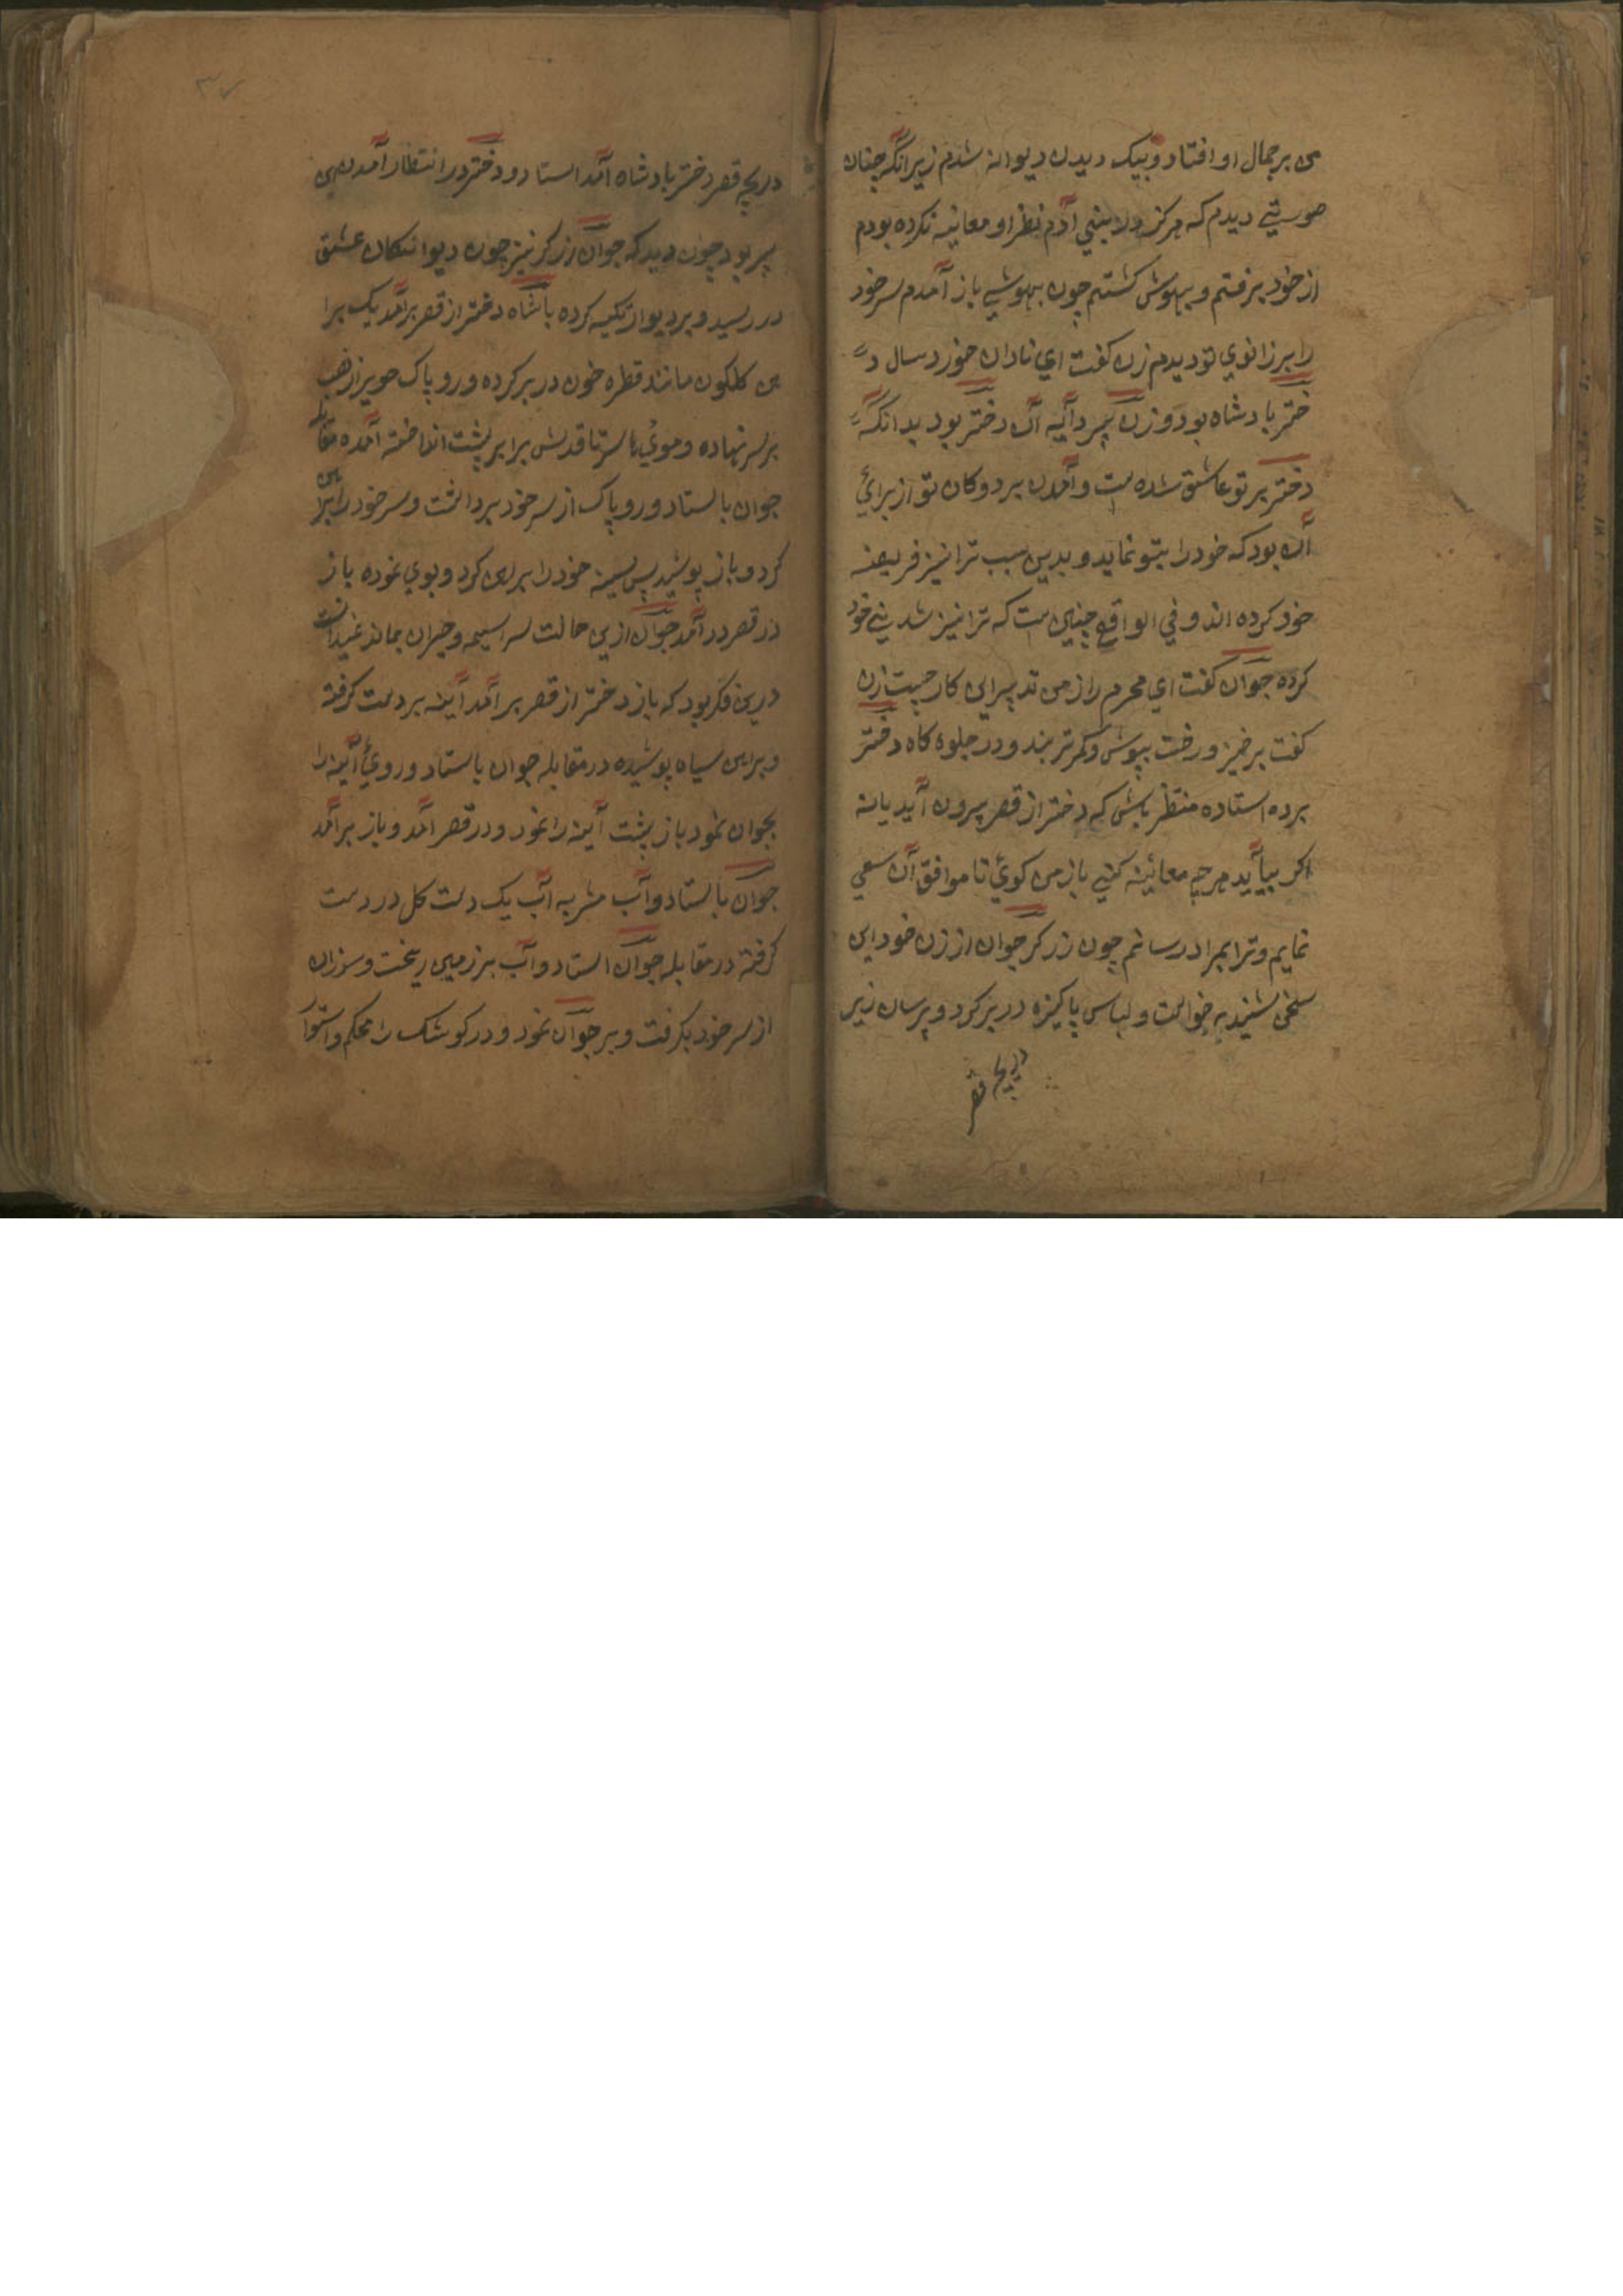 من بر جمال او افتاد و بیک دیدن دیوانه شدم زیرانکه چنان
صورتی دیدم که هرکز در بنی آدم نظر او معاینه نکرده بودم
از خود برفتم و بیهوش کشتم چون بهوشی باز آمدم سر خود
را بر زانوی تو دیدم زن کفت ای نادان خورد سال د
ختر بادشاه بود و زن پیر دایه آن دختر بود بدانکه
دختر بر تو عاشق شده ست و آمدن بر دوکان تو از برای
آن بود که خود را بتو نماید و بدین سبب ترا نیز فریفته
خود کرده اند و فی الواقع چنین ست که ترا نیز شد نی خود
کرده جوان کفت ای محرم راز من تدبیر این کار چیست زن
کفت برخیز و رخت بپوش و کمر تر بند و در جلوه کاه دختر
برده استاده منتظر باش که دختر از قصر بیرون آید یا نه
اکر بیاید هرچه معائینه کنی باز من کوئی تا موافق آن سعی
نمایم و ترا بمراد رسانم چون زرکر جوان از زن خود این
سخن شنید برخواست و لباس پاکیزه در بر کرد و پرسان زیر
دریچه قصر
۳۷
دریچه قصر دختر بادشاه آمد استاد و دختر در انتظار آمدن
پیر بود چون دید که جوان زرکر نیز چون دیوانکان عشق
در رسید و بر دیوار تکیه کرده باشاه دختر از قصر برآمد یک پیرا
هن کلکون مانند قطره خون در بر کرده و روپاک حریر زرهب
بر سر نهاده و موی ها سر تا قدش برابر پشت انداخته آمده مقابله
جوان بایستاد و روپاک از سر خود برداشت و سر خود را برهن
کرد و باز پوشید پس سینه خود را برای کرد و بوی نموده باز
در قصر در آمد جوان ازین حالت سراسیمه و حیران بماند نمیدانست
درین فکر بود که باز دختر از قصر بر آمد آینه بر دست کرفته
و پیراهن سیاه پوشیده در مقابله جوان بایستاد و روئ آینه را
بجوان نمود باز پشت آینه را نمود و در قصر آمد و باز بر آمد
جوان بایستاد و آب مشربه آب یک دست کل در دست
کرفته در مقابله جوان استاد و آب بر زمین ریخت و سوزان
از سر خود بکرفت و بر جوان نمود و در کوشک را محکم و استوا